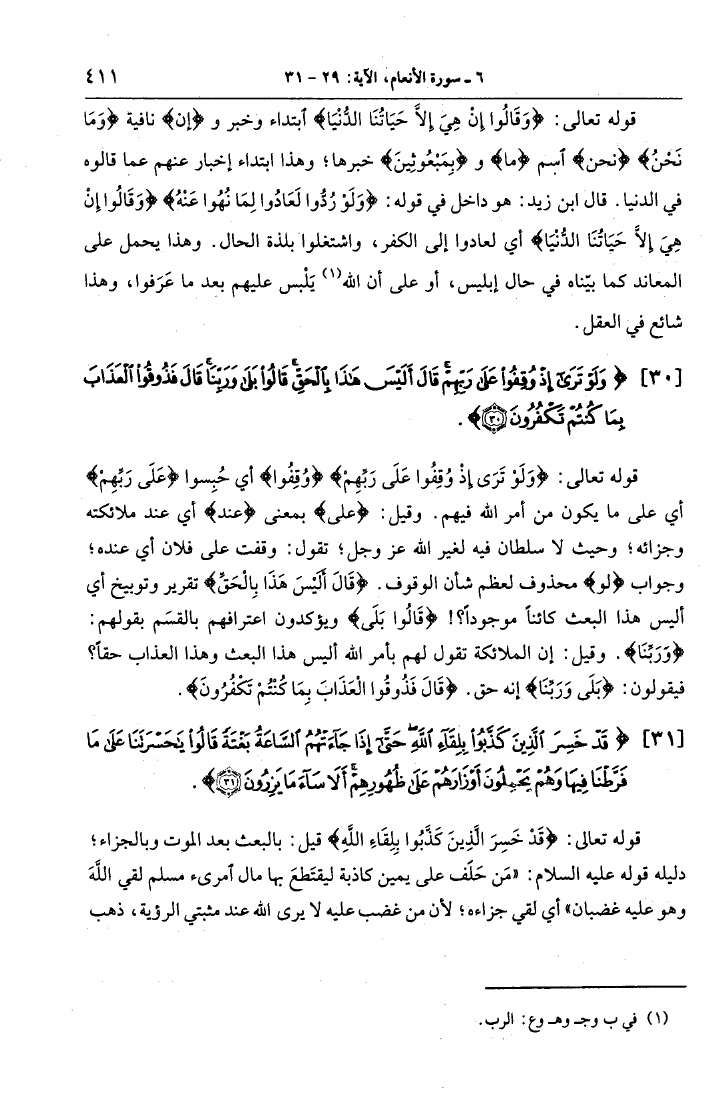 ٦ ـ سورة الأنعام، الآية: ٢٩ - ٣١
٤١١
قوله تعالى: ﴿وَقَالُوا إِنْ هِيَ إِلاَّ حَيَاتُنَا الدُّنْيَا﴾ ٱبتداء وخبر و ﴿إن﴾ نافية ﴿وَمَا
نَحْنُ﴾ ﴿نحن﴾ ٱسم ﴿ما﴾ و ﴿بِمَبْعُوثِينَ﴾ خبرها؛ وهذا ابتداء إخبار عنهم عما قالوه
في الدنيا. قال ابن زيد: هو داخل في قوله: ﴿وَلَوْ رُدُّوا لَعَادُوا لِمَا نُهُوا عَنْهُ﴾ ﴿وَقَالُوا إِنْ
هِيَ إِلاَّ حَيَاتُنَا الدُّنْيَا﴾ أي لعادوا إلى الكفر، واشتغلوا بلذة الحال. وهذا يحمل على
المعاند كما بيّناه في حال إبليس، أو على أن الله(١) يَلْبِس عليهم بعد ما عَرَفوا، وهذا
شائع في العقل.
[٣٠] ﴿ وَلَوْ تَرَىٰٓ إِذْ وُقِفُوا۟ عَلَىٰ رَبِّهِمْ ۚ قَالَ أَلَيْسَ هَٰذَا بِٱلْحَقِّ ۚ قَالُوا۟ بَلَىٰ وَرَبِّنَا ۚ قَالَ فَذُوقُوا۟ ٱلْعَذَابَ
بِمَا كُنتُمْ تَكْفُرُونَ ۝٣٠﴾.
قوله تعالى: ﴿وَلَوْ تَرَى إِذْ وُقِفُوا عَلَى رَبِّهِمْ﴾ ﴿وُقِفُوا﴾ أي حُبِسوا ﴿عَلَى رَبِّهِمْ﴾
أي على ما يكون من أمر الله فيهم. وقيل: ﴿على﴾ بمعنى ﴿عند﴾ أي عند ملائكته
وجزائه؛ وحيث لا سلطان فيه لغير الله عز وجل؛ تقول: وقفت على فلان أي عنده؛
وجواب ﴿لو﴾ محذوف لعظم شأن الوقوف. ﴿قَالَ أَلَيْسَ هَذَا بِالْحَقِّ﴾ تقرير وتوبيخ أي
أليس هذا البعث كائناً موجوداً؟! ﴿قَالُوا بَلَى﴾ ويؤكدون اعترافهم بالقسَم بقولهم:
﴿وَرَبِّنَا﴾. وقيل: إن الملائكة تقول لهم بأمر الله أليس هذا البعث وهذا العذاب حقاً؟
فيقولون: ﴿بَلَى وَرَبِّنَا﴾ إنه حق. ﴿قَالَ فَذُوقُوا الْعَذَابَ بِمَا كُنْتُمْ تَكْفُرُونَ﴾.
[٣١] ﴿ قَدْ خَسِرَ ٱلَّذِينَ كَذَّبُوا۟ بِلِقَآءِ ٱللَّهِ ۖ حَتَّىٰٓ إِذَا جَآءَتْهُمُ ٱلسَّاعَةُ بَغْتَةً قَالُوا۟ يَٰحَسْرَتَنَا عَلَىٰ مَا
فَرَّطْنَا فِيهَا وَهُمْ يَحْمِلُونَ أَوْزَارَهُمْ عَلَىٰ ظُهُورِهِمْ ۚ أَلَا سَآءَ مَا يَزِرُونَ ۝٣١﴾.
قوله تعالى: ﴿قَدْ خَسِرَ الَّذِينَ كَذَّبُوا بِلِقَاءِ اللَّهِ﴾ قيل: بالبعث بعد الموت وبالجزاء؛
دليله قوله عليه السلام: «مَن حَلَف على يمين كاذبة ليقتَطعَ بها مال ٱمرىء مسلم لقي اللَّهَ
وهو عليه غضبان» أي لقي جزاءه؛ لأن من غضب عليه لا يرى الله عند مثبتي الرؤية، ذهب
(١) في ب وجـ وهـ وع: الرب.